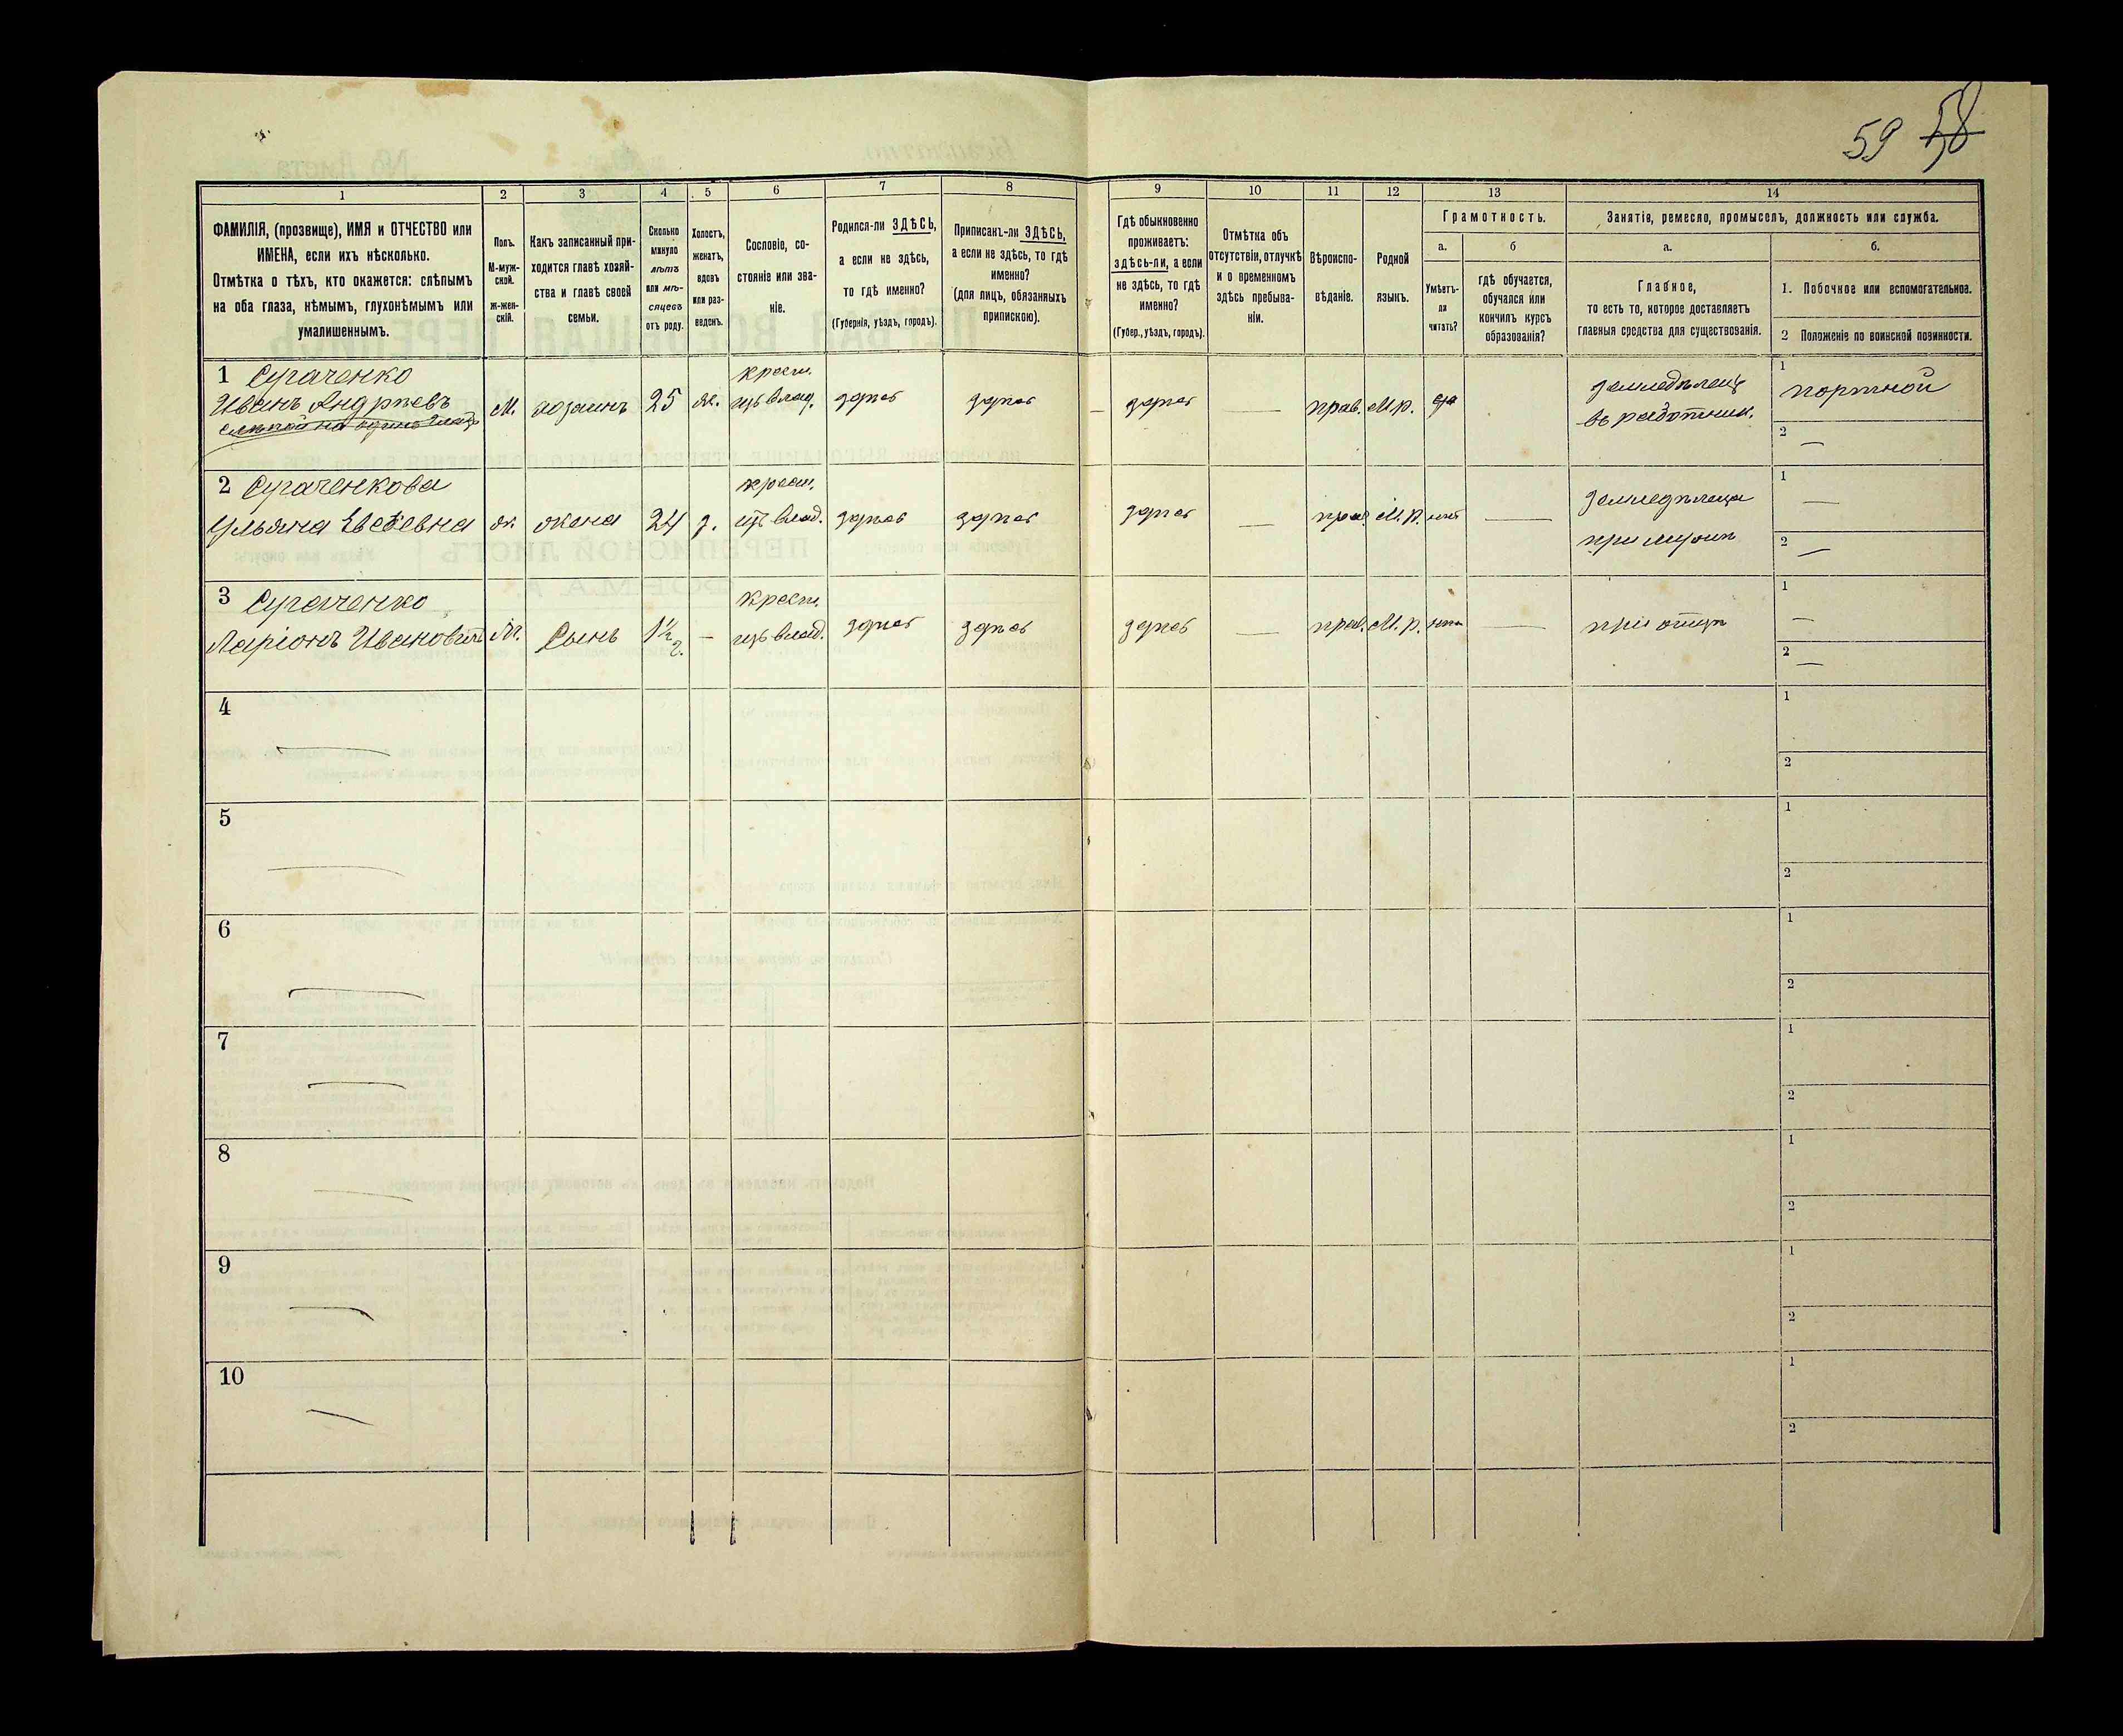 59 58
1
2
3
4
5
6
7
8
9
10
11
12
13
14
ФАМИЛІЯ, (прозвище), ИМЯ и ОТЧЕСТВО или
ИМЕНА, если ихъ нѣсколько.
Отмѣтка о тѣхъ, кто окажется: слѣпымъ
на оба глаза, нѣмымъ, глухонѣмымъ или
умалишеннымъ.
Полъ.
М-муж-
ской.
ж-жен-
скій.
Какъ записанный при-
ходится главѣ хозяй-
ства и главѣ своей
семьи.
Сколько
минуло
лѣтъ
или мѣ-
сяцевъ
отъ роду.
Холостъ,
женатъ,
вдовъ
или раз-
веденъ.
Сословіе, со-
стояніе или зва-
ніе.
Родился-ли ЗДѢСЬ,
а если не здѣсь,
то гдѣ именно?
(Губернія, уѣздъ, городъ).
Приписанъ-ли ЗДѢСЬ,
а если не здѣсь, то гдѣ
именно?
(для лицъ, обязанныхъ
припискою).
Гдѣ обыкновенно
проживаетъ:
здѣсь-ли, а если
не здѣсь, то гдѣ
именно?
(Губер., уѣздъ, городъ).
Отмѣтка объ
отсутствіи, отлучкѣ
и о временномъ
здѣсь пребыва-
ніи.
Вѣроиспо-
вѣданіе.
Родной
языкъ.
Грамотность.
а.
Умѣетъ-
ли
читать?
б
гдѣ обучается,
обучался или
кончилъ курсъ
образованія?
Занятія, ремесло, промыселъ, должность или служба.
а.
Главное,
то есть то, которое доставляетъ
главныя средства для существованія.
б.
1. Побочное или вспомогательное.
2 Положеніе по воинской повинности.
1 Сугаченко крест. земледѣлецъ 1 портной
Иванъ Андреевъ М. хозяинъ 25 ж. изъ влад. здѣсь здѣсь — здѣсь — прав. М.р. да въ работник.
слѣпой на одинъ глазъ 2 —
2 Сугаченкова крест. земледѣлица 1 —
Ульяна ж жена 24 з. изъ влад. здѣсь здѣсь здѣсь — прав. М.р. нѣтъ — при мужѣ 2 —
3 Сугаченко крест. 1 —
Ларіонъ Ивановичъ М. Сынъ 1½ г. — изъ влад. здѣсь здѣсь здѣсь — прав. М.р. нѣтъ — при отцѣ 2 —
4 — 1
2
5 — 1
2
6 — 1
2
7 — 1
2
8 — 1
2
9 — 1
2
10 — 1
2